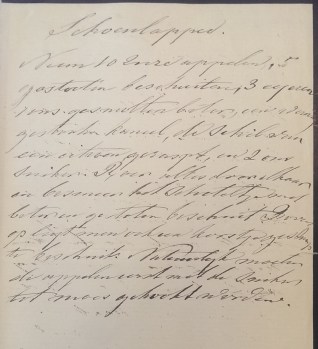 Schoenlapper.
Neem 10 zure appelen, 5
gestooten beschuiten, 3 eijeren
ons gesmolten boter, een weinig
gestooten kaneel, de schil van
een citroen geraspt, en 2 ons
suiker. Roer alles door elkaar
en besmeer het schoteltje met
boter en gestoten beschuit
op legt men ook een korstje
beschuit. Natuurlijk moeten
de appelen eerst met de suiker
tot moes gekookt worden.